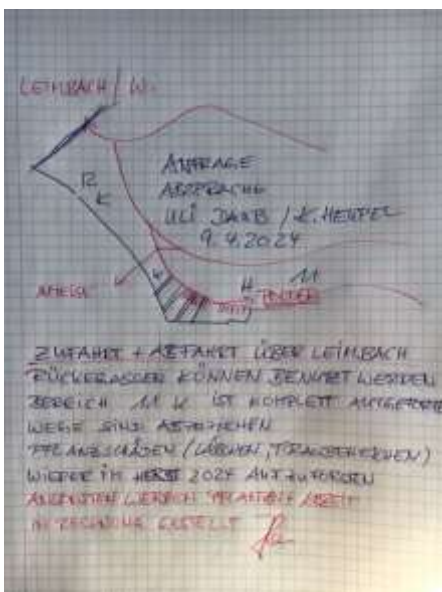 LEIMBACH / W.
ANFRAGE
ABSPRACHE
ULI DAUB / K. HEMPEL
9.4.2024
R
K
K
11
AMEISE
ZUFAHRT + ABFAHRT ÜBER LEIMBACH
RÜCKEGASSEN KÖNNEN BENUTZT WERDEN
BEREICH 11 K IST KOMPLETT AUFGEFORSTET
WEGE SIND ABZUZIEHEN
PFLANZSCHÄDEN (LÄRCHEN, TRAUBENEICHEN)
WIEDER IM HERBST 2024 AUFZUFORSTEN
ANSONSTEN WERDEN PFLANZEN + ARBEIT
IN RECHNUNG GESTELLT